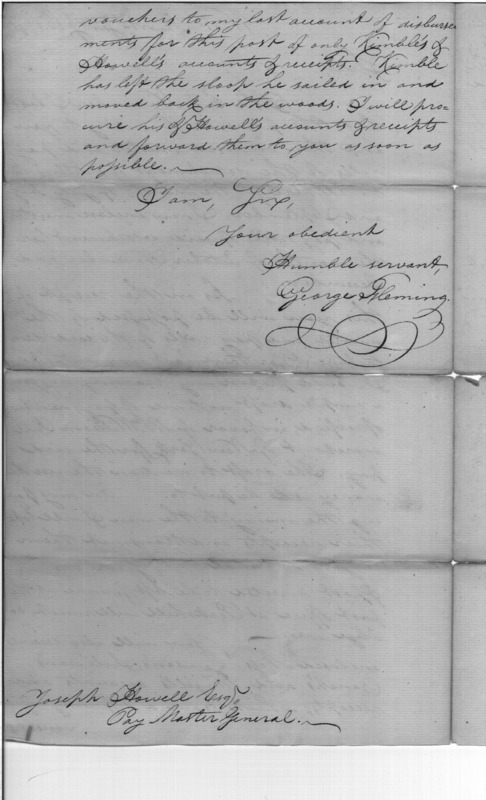 vouchers to my last account of disburse
ments for this post of only Kimble's &
Howell's accounts & receipts. Kimble
has left the sloop he sailed in and
moved back in the woods. I will pro-
cure his & Howell's accounts & receipts
and forward them to you as soon as
possible.
I am, Sir,
Your obedient
Humble servant,
George Fleming.
Joseph Howell Esqr.
Pay Master General.